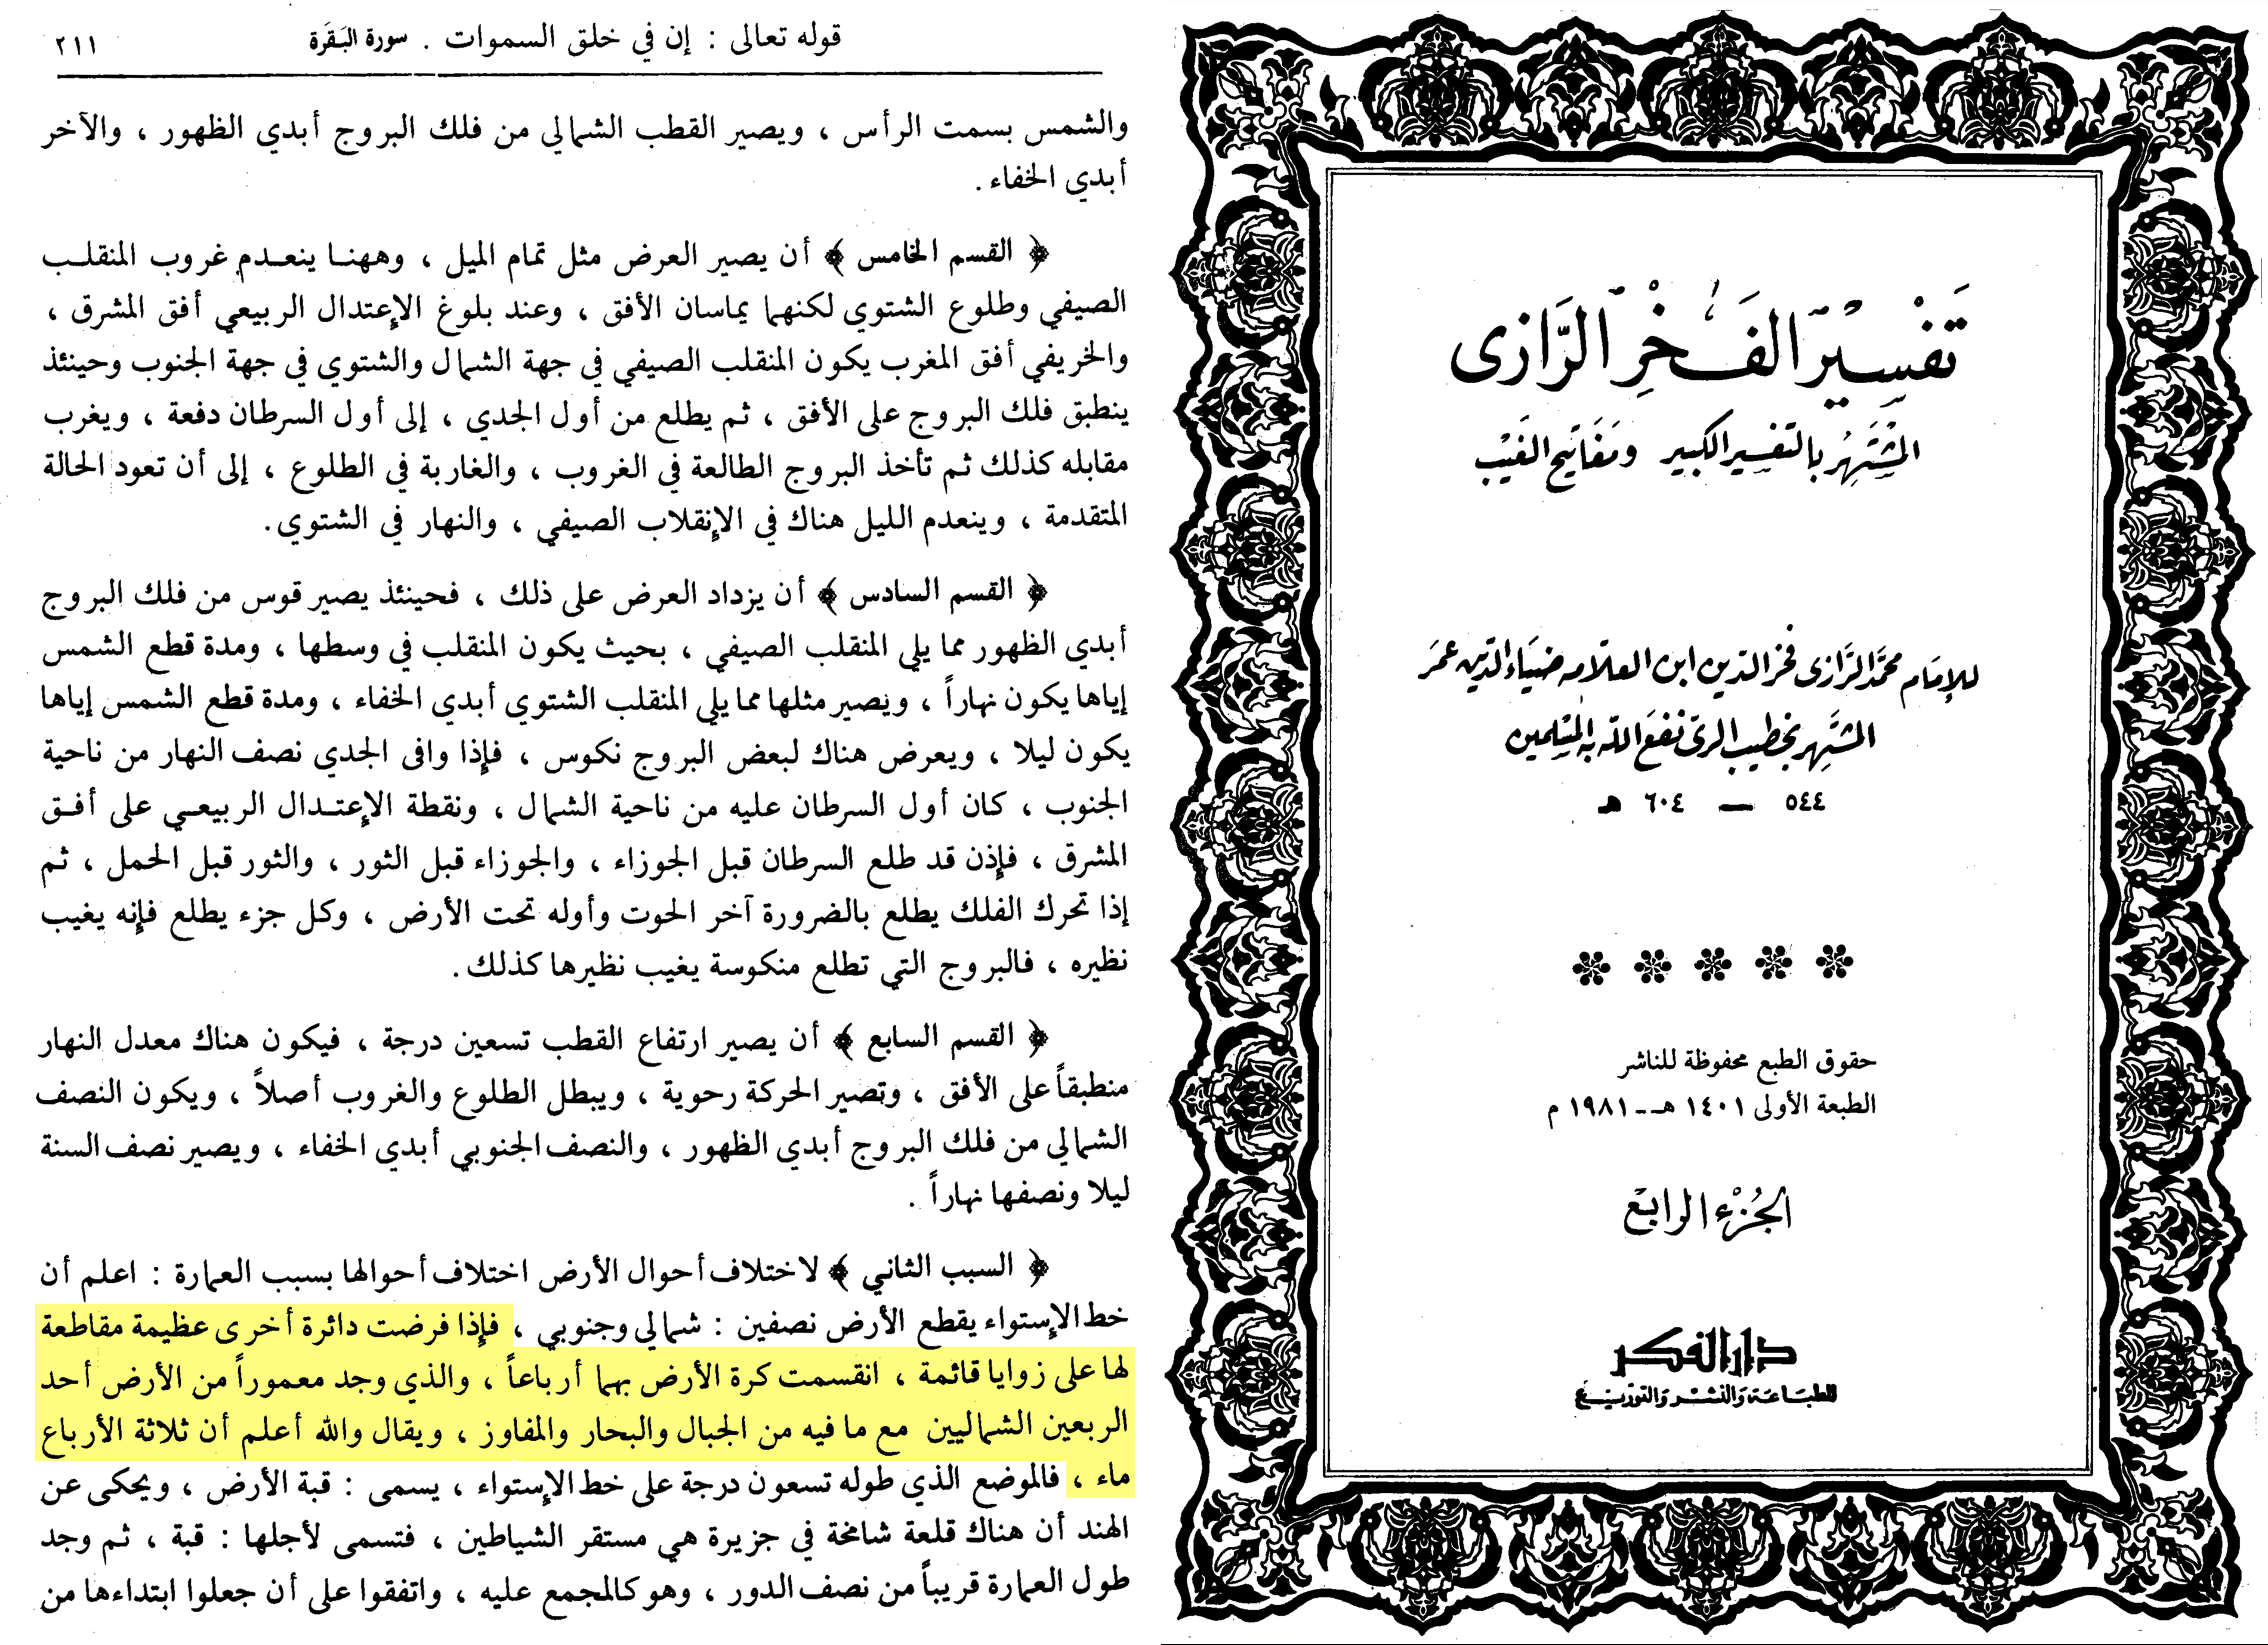 قوله تعالى : إن في خلق السموات . سورة البَقَرَة ٢١١
والشمس بسمت الرأس ، ويصير القطب الشمالي من فلك البروج أبدي الظهور ، والآخر
أبدي الخفاء .
﴿ القسم الخامس ﴾ أن يصير العرض مثل تمام الميل ، وههنا ينعدم غروب المنقلب
الصيفي وطلوع الشتوي لكنهما يماسان الأفق ، وعند بلوغ الإعتدال الربيعي أفق المشرق ،
والخريفي أفق المغرب يكون المنقلب الصيفي في جهة الشمال والشتوي في جهة الجنوب وحينئذ
ينطبق فلك البروج على الأفق ، ثم يطلع من أول الجدي ، إلى أول السرطان دفعة ، ويغرب
مقابله كذلك ثم تأخذ البروج الطالعة في الغروب ، والغاربة في الطلوع ، إلى أن تعود الحالة
المتقدمة ، وينعدم الليل هناك في الإنقلاب الصيفي ، والنهار في الشتوي .
﴿ القسم السادس ﴾ أن يزداد العرض على ذلك ، فحينئذ يصير قوس من فلك البروج
أبدي الظهور مما يلي المنقلب الصيفي ، بحيث يكون المنقلب في وسطها ، ومدة قطع الشمس
إياها يكون نهاراً ، ويصير مثلها مما يلي المنقلب الشتوي أبدي الخفاء ، ومدة قطع الشمس إياها
يكون ليلا ، ويعرض هناك لبعض البروج نكوس ، فإذا وافى الجدي نصف النهار من ناحية
الجنوب ، كان أول السرطان عليه من ناحية الشمال ، ونقطة الإعتدال الربيعي على أفق
المشرق ، فإذن قد طلع السرطان قبل الجوزاء ، والجوزاء قبل الثور ، والثور قبل الحمل ، ثم
إذا تحرك الفلك يطلع بالضرورة آخر الحوت وأوله تحت الأرض ، وكل جزء يطلع فإنه يغيب
نظيره ، فالبروج التي تطلع منكوسة يغيب نظيرها كذلك .
﴿ القسم السابع ﴾ أن يصير ارتفاع القطب تسعين درجة ، فيكون هناك معدل النهار
منطبقاً على الأفق ، وتصير الحركة رحوية ، ويبطل الطلوع والغروب أصلاً ، ويكون النصف
الشمالي من فلك البروج أبدي الظهور ، والنصف الجنوبي أبدي الخفاء ، ويصير نصف السنة
ليلا ونصفها نهاراً .
﴿ السبب الثاني ﴾ لاختلاف أحوال الأرض اختلاف أحوالها بسبب العمارة : اعلم أن
خط الإستواء يقطع الأرض نصفين : شمالي وجنوبي ، فإذا فرضت دائرة أخرى عظيمة مقاطعة
لها على زوايا قائمة ، انقسمت كرة الأرض بهما أرباعاً ، والذي وجد معموراً من الأرض أحد
الربعين الشماليين مع ما فيه من الجبال والبحار والمفاوز ، ويقال والله أعلم أن ثلاثة الأرباع
ماء ، فالموضع الذي طوله تسعون درجة على خط الإستواء ، يسمى : قبة الأرض ، ويحكى عن
الهند أن هناك قلعة شامخة في جزيرة هي مستقر الشياطين ، فتسمى لأجلها : قبة ، ثم وجد
طول العمارة قريباً من نصف الدور ، وهو كالمجمع عليه ، واتفقوا على أن جعلوا ابتداءها من
تَفْسِير الفَخْرِ الرَّازى
المُشْتَهِرُ بالتفسير الكبير ومَفَاتِيح الغَيْب
للإمَام محمَّد الرَّازى فخر الدين ابن العلامه ضيَاء الدين عمَر
المشتَهِر بخطيب الرى نفعَ الله به المسْلمين
٥٤٤ — ٦٠٤ هـ
حقوق الطبع محفوظة للناشر
الطبعة الأولى ١٤٠١ هـ -- ١٩٨١ م
الجُزْءُ الرابع
دار الفكر
للطباعة والنشر والتوزيع